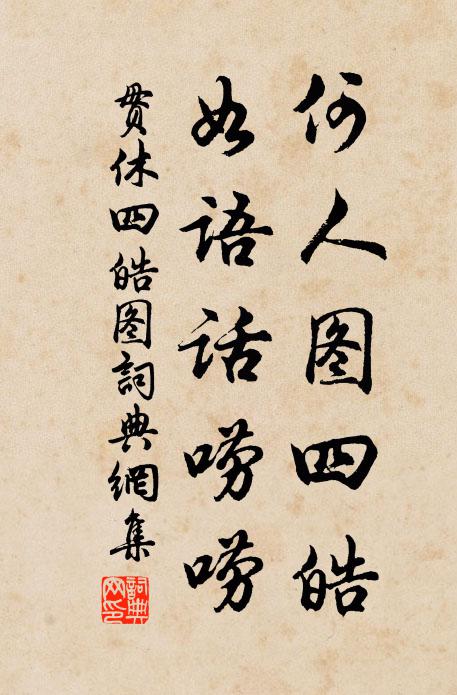 何人图四皓
如语话唠唠
贯休四皓图詞典網集
詞典网印